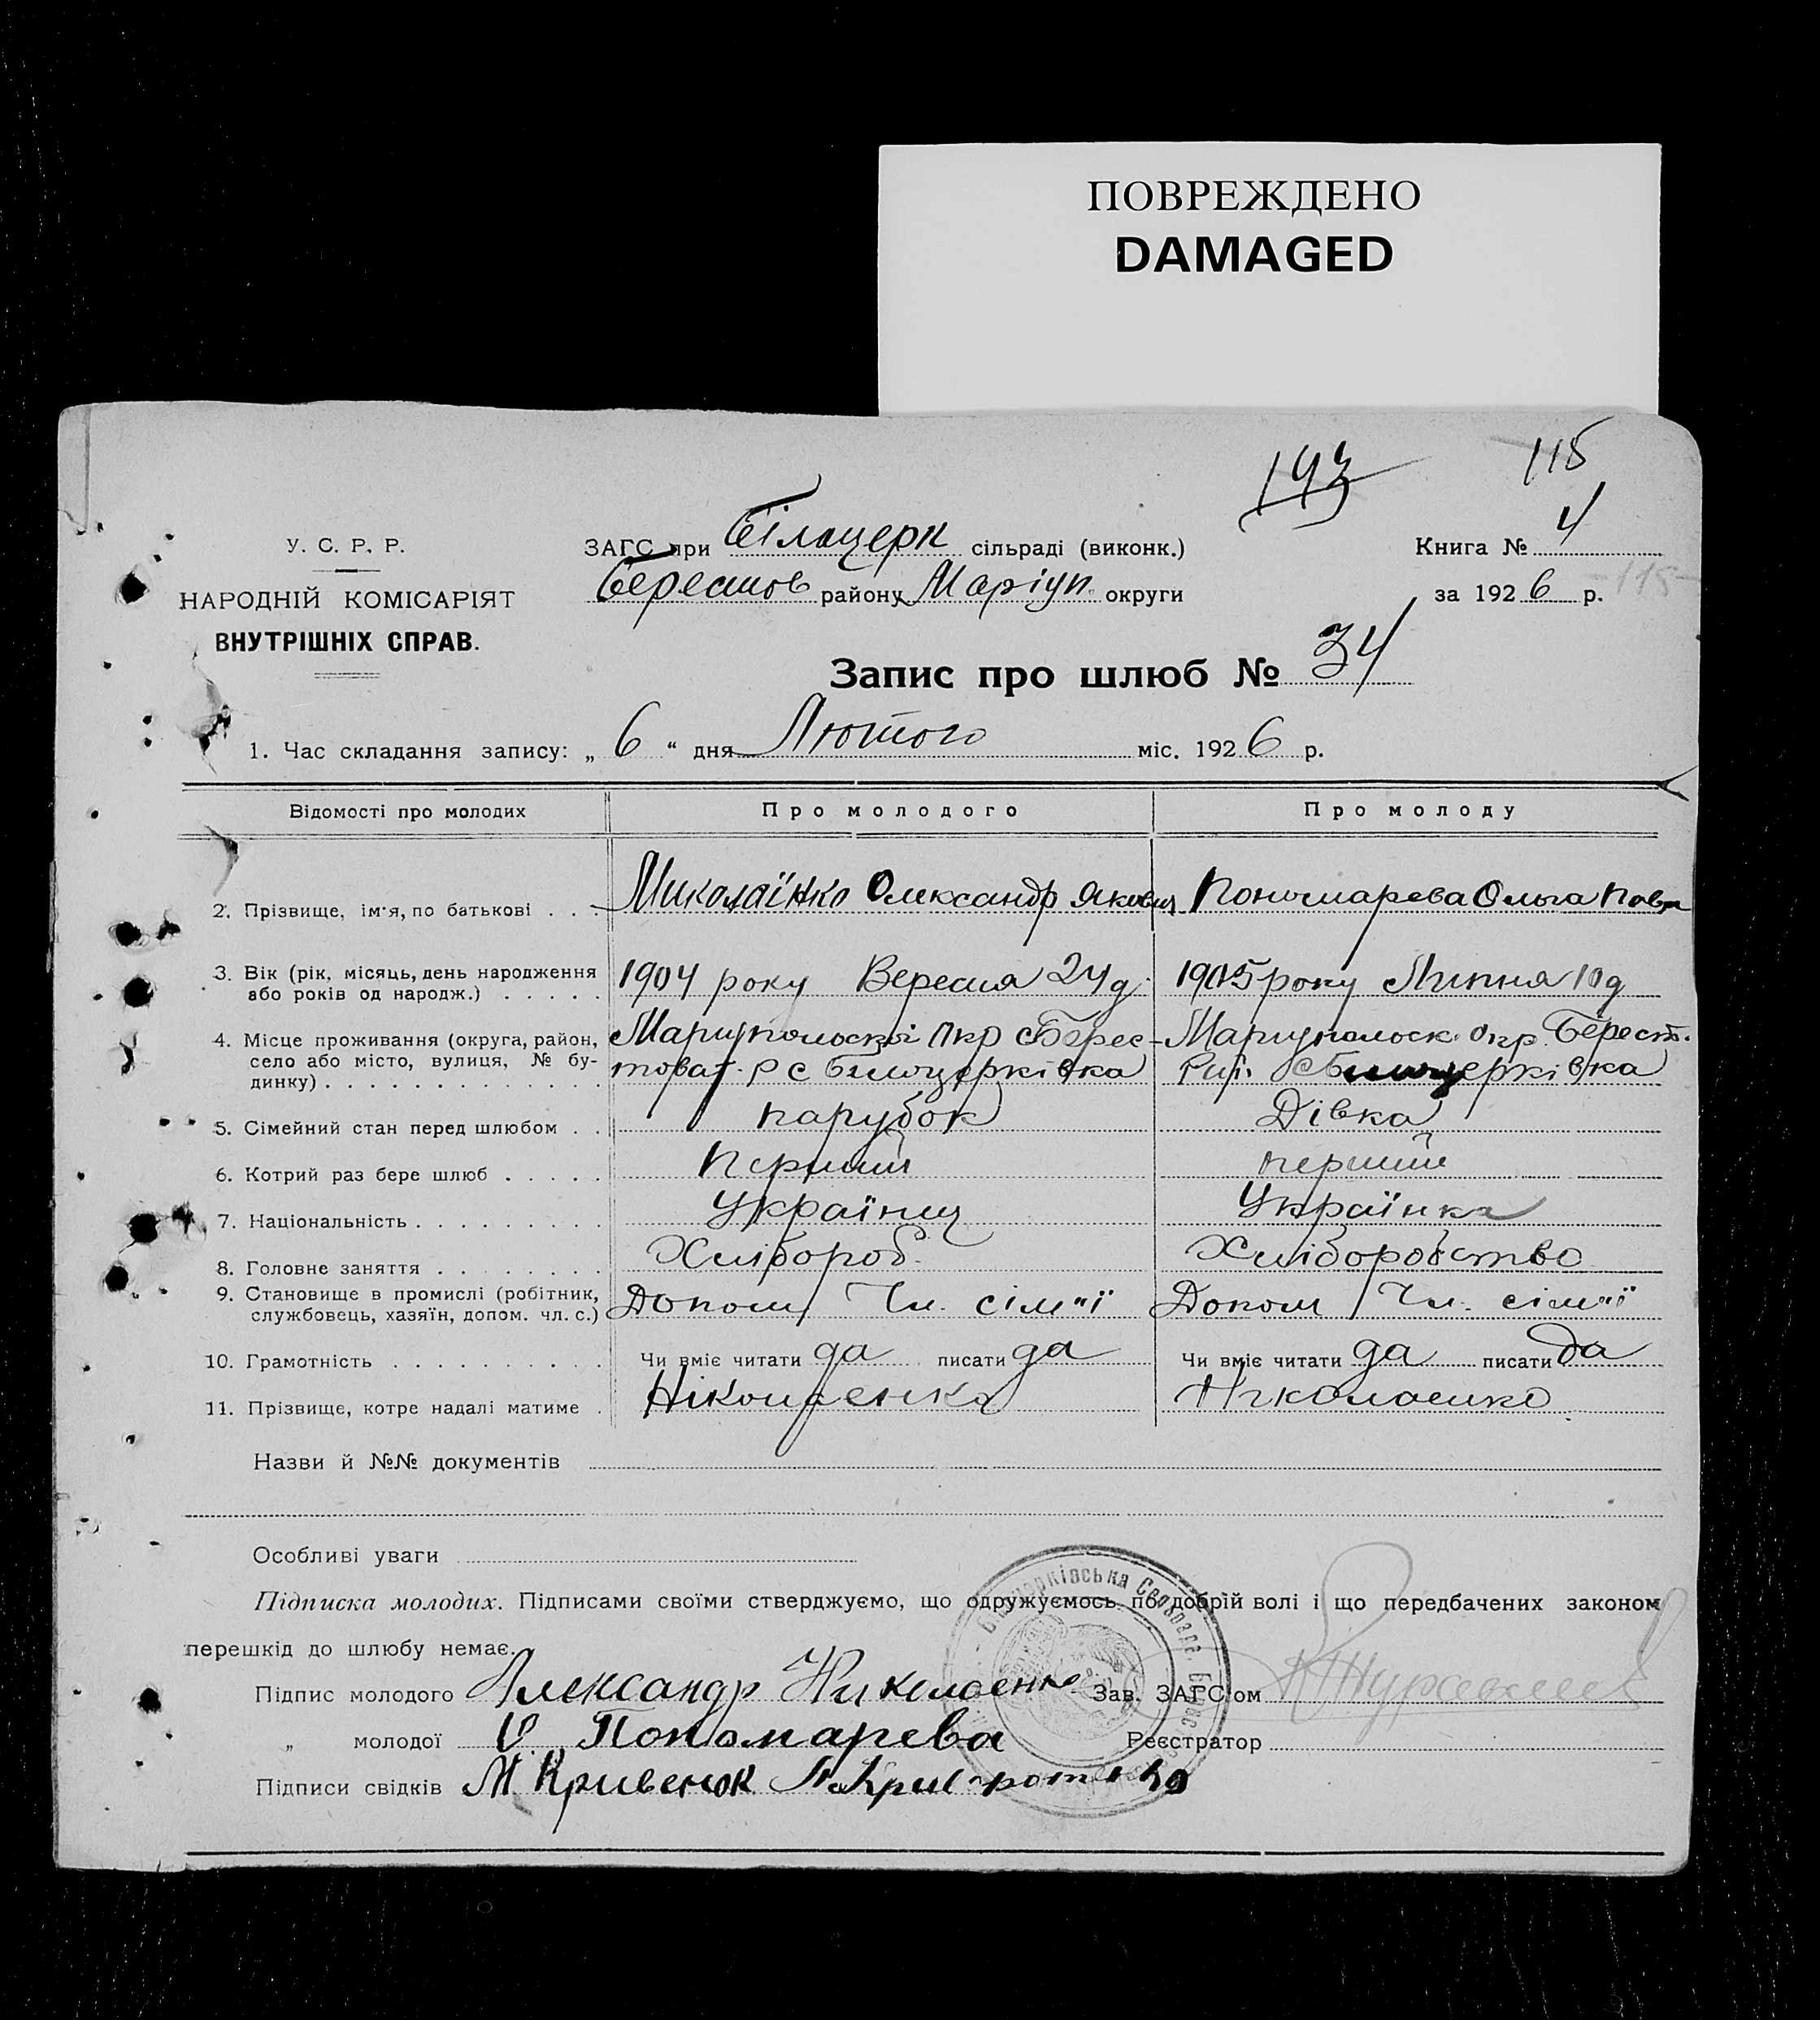 ПОВРЕЖДЕНО
DAMAGED
193 115
У. С. Р. Р.
НАРОДНІЙ КОМІСАРІЯТ
ВНУТРІШНІХ СПРАВ.
ЗАГС при Білоцерк сільраді (виконк.)
Берестов району Маріуп. округи
Книга № 4
за 1926 р. -115-
Запис про шлюб № 34
1. Час складання запису: „ 6 “ дня Лютого міс. 1926 р.
Відомості про молодих Про молодого Про молоду
2. Прізвище, ім'я, по батькові . . . Миколаїнко Олександр Якович Пономарева Ольга Павл
3. Вік (рік, місяць, день народження 1904 року Вересня 24 д. 1905 року Липня 10 д
або років од народж.) . . . . .
4. Місце проживання (округа, район, Мариупольскі Окр Берес- Мариупольск. Окр. Берест.
село або місто, вулиця, № бу- товат. Р с Билоцерківка Рай. с Билоцерківка
динку) . . . . . . . . . . . . . .
5. Сімейний стан перед шлюбом . . парубок Дівка
6. Котрий раз бере шлюб . . . . . Перший перший
7. Національність . . . . . . . . . Українц Українка
8. Головне заняття . . . . . . . . Хлібороб. Хліборобство
9. Становище в промислі (робітник, Допом Чл. сім"ї Допом Чл. сім"ї
службовець, хазяїн, допом. чл. с.)
10. Грамотність . . . . . . . . . . . Чи вміє читати да писати да Чи вміє читати да писати да
11. Прізвище, котре надалі матиме . Ніколаенко Николаенко
Назви й №№ документів
Особливі уваги
Підписка молодих. Підписами своїми стверджуємо, що одружуємось по добрій волі і що передбачених законом
перешкід до шлюбу немає.
Підпис молодого Александр Николаенко Зав. ЗАГС'ом
„ молодої О. Пономарева Реєстратор
Підписи свідків М. Кривенок